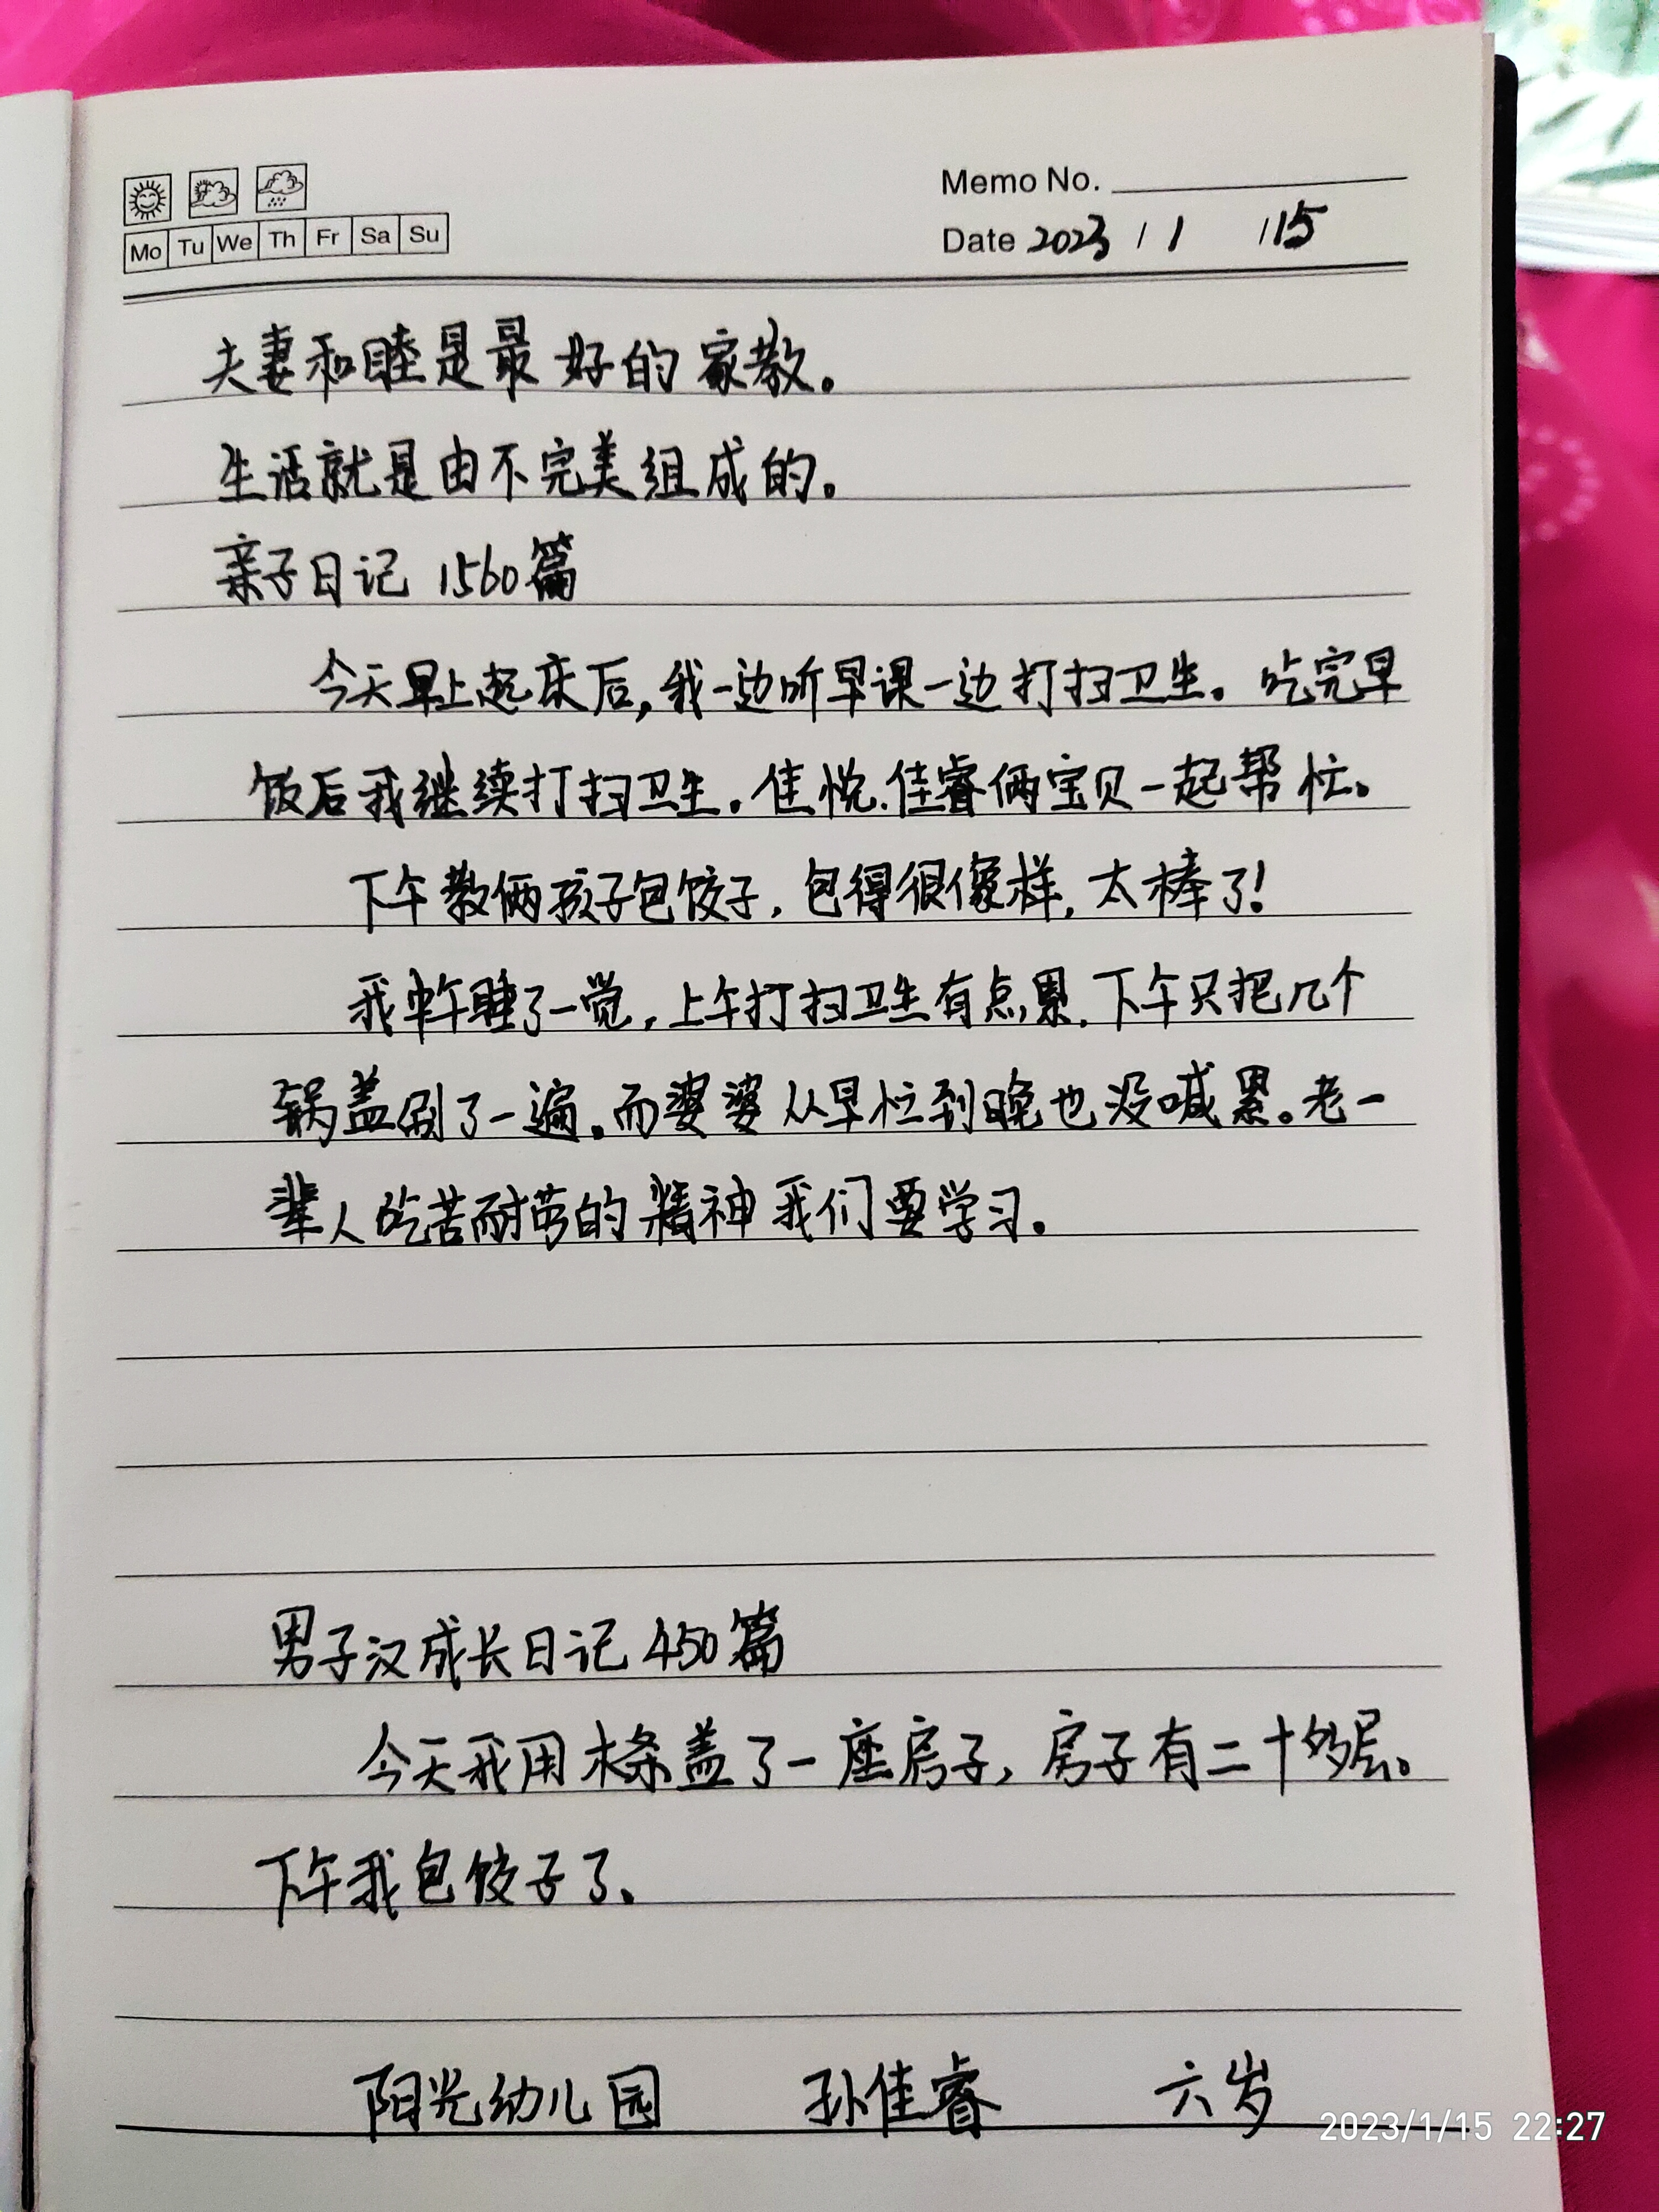 Memo No.
Mo Tu We Th Fr Sa Su
Date 2023 / 1 / 15
夫妻和睦是最好的家教。
生活就是由不完美组成的。
亲子日记 1560篇
今天早上起床后,我一边听早课一边打扫卫生。吃完早
饭后我继续打扫卫生。佳悦.佳睿俩宝贝一起帮忙。
下午教俩孩子包饺子,包得很像样,太棒了!
我中午睡了一觉,上午打扫卫生有点累.下午只把几个
锅盖刷了一遍。而婆婆从早忙到晚也没喊累。老一
辈人吃苦耐劳的精神我们要学习。
男子汉成长日记 450篇
今天我用木条盖了一座房子,房子有二十多层。
下午我包饺子了。
阳光幼儿园 孙佳睿 六岁
2023/1/15 22:27